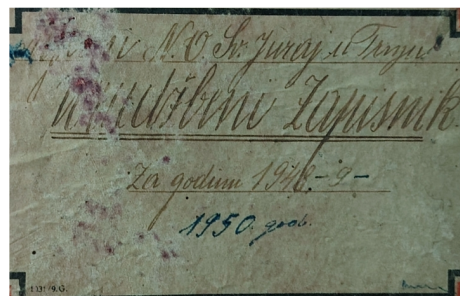 N.O Sv. Juraj u Trnju
Zapisnik
Za godinu 1948-9-
1950. god.